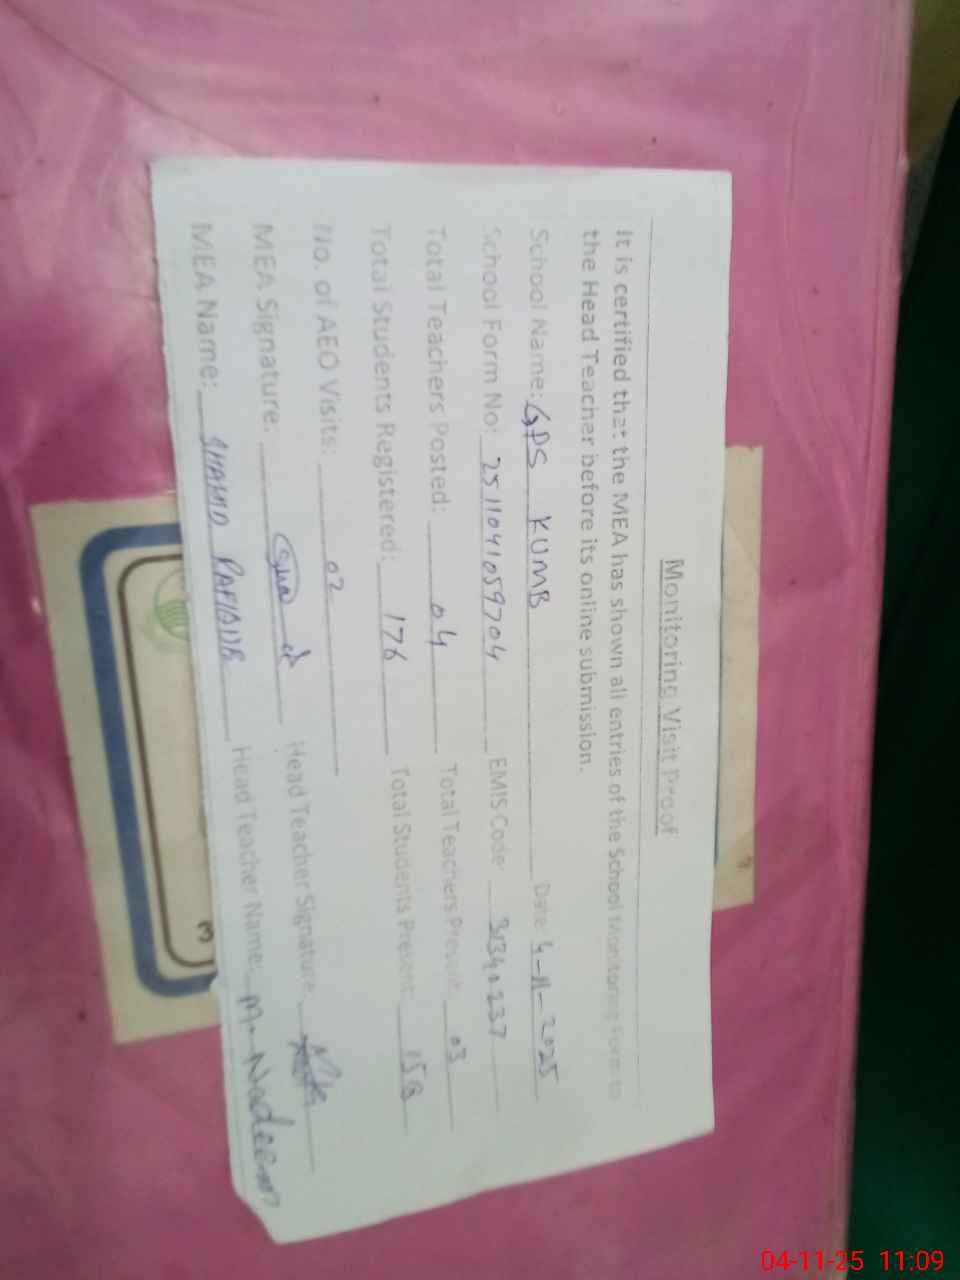 Monitoring Visit Proof
It is certified that the MEA has shown all entries of the School Monitoring Form to
the Head Teacher before its online submission.
School Name: GPS KUMB Date 4-11-2025
School Form No: 2511041059704 EMIS Code
Total Teachers Posted: 04 Total Teachers Present: 03
Total Students Registered: 176 Total Students Present
No. of AEO Visits: 02
MEA Signature: Head Teacher Signature
MEA Name: SHAHID Head Teacher Name: M. Nadeem
3
04-11-25 11:09